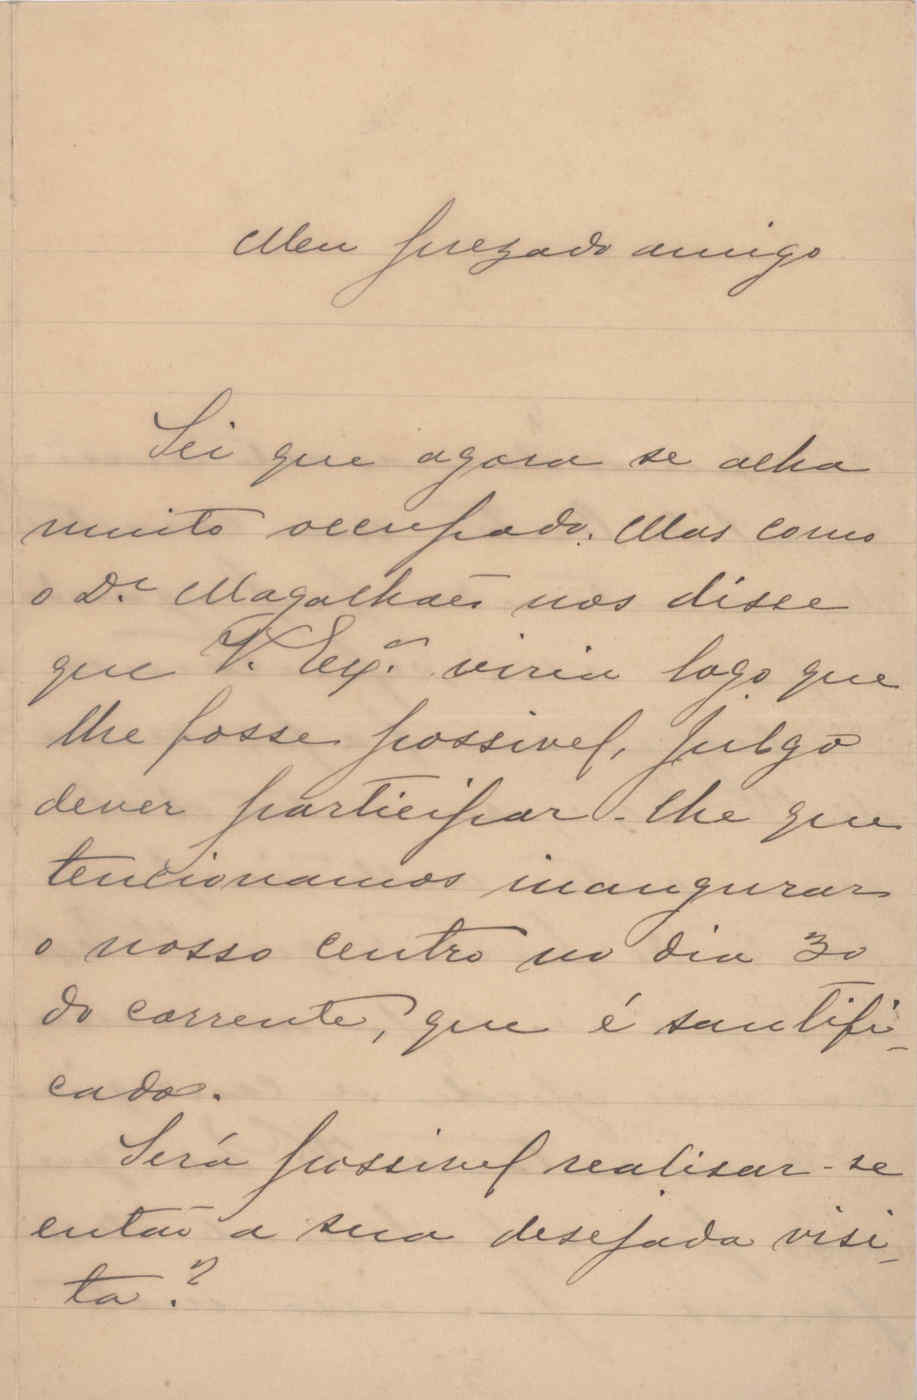 Meu prezado amigo
Sei que agora se acha
muito occupado. Mas como
o Dr. Magalhães nos disse
que V. Exª. viria logo que
lhe fosse possivel, julgo
dever participar-lhe que
tencionamos inaugurar
o nosso centro no dia 30
do corrente, que é santifi-
cado.
Será possivel realisar-se
então a sua desejada visi-
ta?